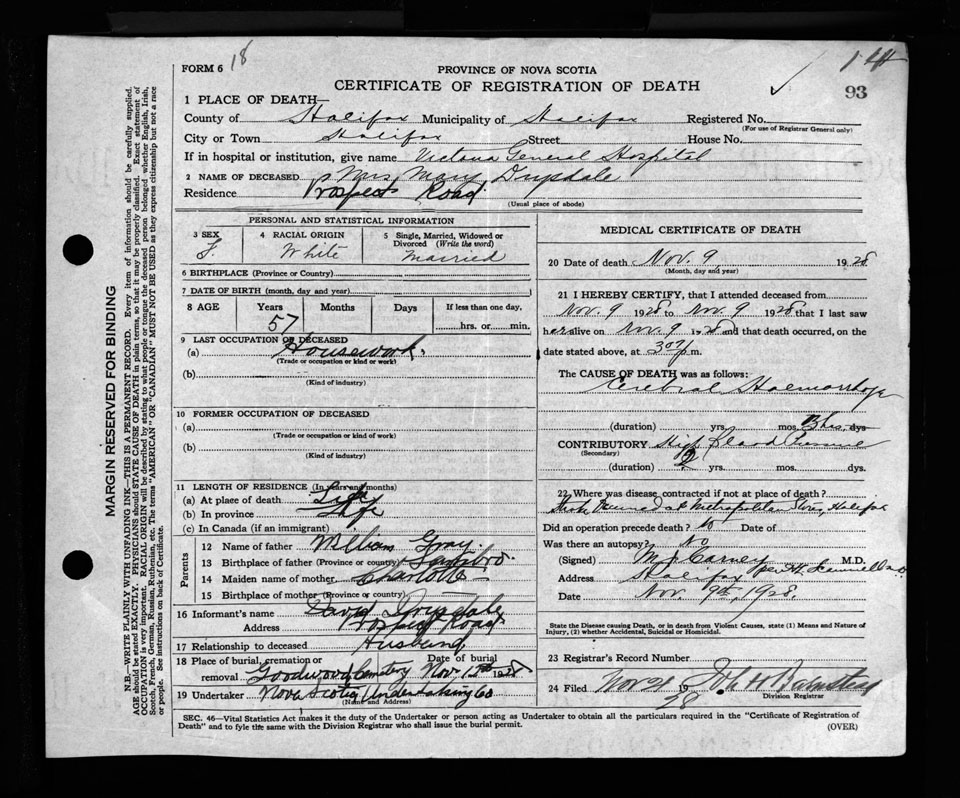 FORM 6
18
PROVINCE OF NOVA SCOTIA
CERTIFICATE OF REGISTRATION OF DEATH
93
1 PLACE OF DEATH—
County of Halifax Municipality of Halifax Registered No.
(For use of Registrar General only)
City or Town Halifax Street House No.
If in hospital or institution, give name Victoria General Hospital
2 NAME OF DECEASED Mrs Mary Drysdale
Residence Prospect Road
(Usual place of abode)
PERSONAL AND STATISTICAL INFORMATION
3 SEX
F.
4 RACIAL ORIGIN
White
5 Single, Married, Widowed or Divorced (Write the word)
Married
6 BIRTHPLACE (Province or Country)
7 DATE OF BIRTH (month, day and year)
8 AGE Years Months Days If less than one day,
57 hrs. or min.
9 LAST OCCUPATION OF DECEASED
(a) Housework
(Trade or occupation or kind or work)
(b)
(Kind of industry)
10 FORMER OCCUPATION OF DECEASED
(a)
(Trade or occupation or kind of work)
(b)
(Kind of industry)
11 LENGTH OF RESIDENCE (In years and months)
(a) At place of death Life
(b) In province Life
(c) In Canada (if an immigrant)
Parents
12 Name of father William Gray
13 Birthplace of father (Province or country) Sambro
14 Maiden name of mother Charlotte
15 Birthplace of mother (Province or country)
16 Informant's name David Drysdale
Address Prospect Road
17 Relationship to deceased Husband
18 Place of burial, cremation or removal Goodwood Cemetery
Date of burial Nov. 1928
19 Undertaker Nova Scotia Undertaking Co
(Name and Address)
MEDICAL CERTIFICATE OF DEATH
20 Date of death Nov. 9 1928
(Month, day and year)
21 I HEREBY CERTIFY, that I attended deceased from
Nov. 9 1928 to Nov. 9 1928 that I last saw
her alive on Nov. 9 1928 and that death occurred, on the
date stated above, at p.m.
The CAUSE OF DEATH was as follows:
Cerebral Haemorrhage
(duration) yrs. mos. 3 hrs. dys
CONTRIBUTORY High Blood Pressure
(Secondary)
(duration) 2 yrs. mos. dys.
22 Where was disease contracted if not at place of death?
Stroke Occurred at Metropolitan Store, Halifax
Did an operation precede death? No Date of
Was there an autopsy? No
(Signed) M J Carney M.D.
Address Halifax
Date Nov. 9th, 1928.
State the Disease causing Death, or in death from Violent Causes, state (1) Means and Nature of
Injury, (2) whether Accidental, Suicidal or Homicidal.
23 Registrar's Record Number
24 Filed Nov 21 1928 John H
Division Registrar
SEC. 46—Vital Statistics Act makes it the duty of the Undertaker or person acting as Undertaker to obtain all the particulars required in the "Certificate of Registration of
Death" and to fyle the same with the Division Registrar who shall issue the burial permit.
(OVER)
MARGIN RESERVED FOR BINDING
N.B.—WRITE PLAINLY WITH UNFADING INK—THIS IS A PERMANENT RECORD. Every item of information should be carefully supplied.
AGE should be stated EXACTLY. PHYSICIANS should STATE CAUSE OF DEATH in plain terms, so that it may be properly classified. Exact statement of
OCCUPATION is very important. RACIAL ORIGIN will be described by stating to what people or tongue the deceased person belonged whether English, Irish,
Scotch, French, German, Russian, Ruthenian, etc. The terms "AMERICAN" OR "CANADIAN" MUST NOT BE USED as they express citizenship but not a race
or people. See instructions on back of Certificate.